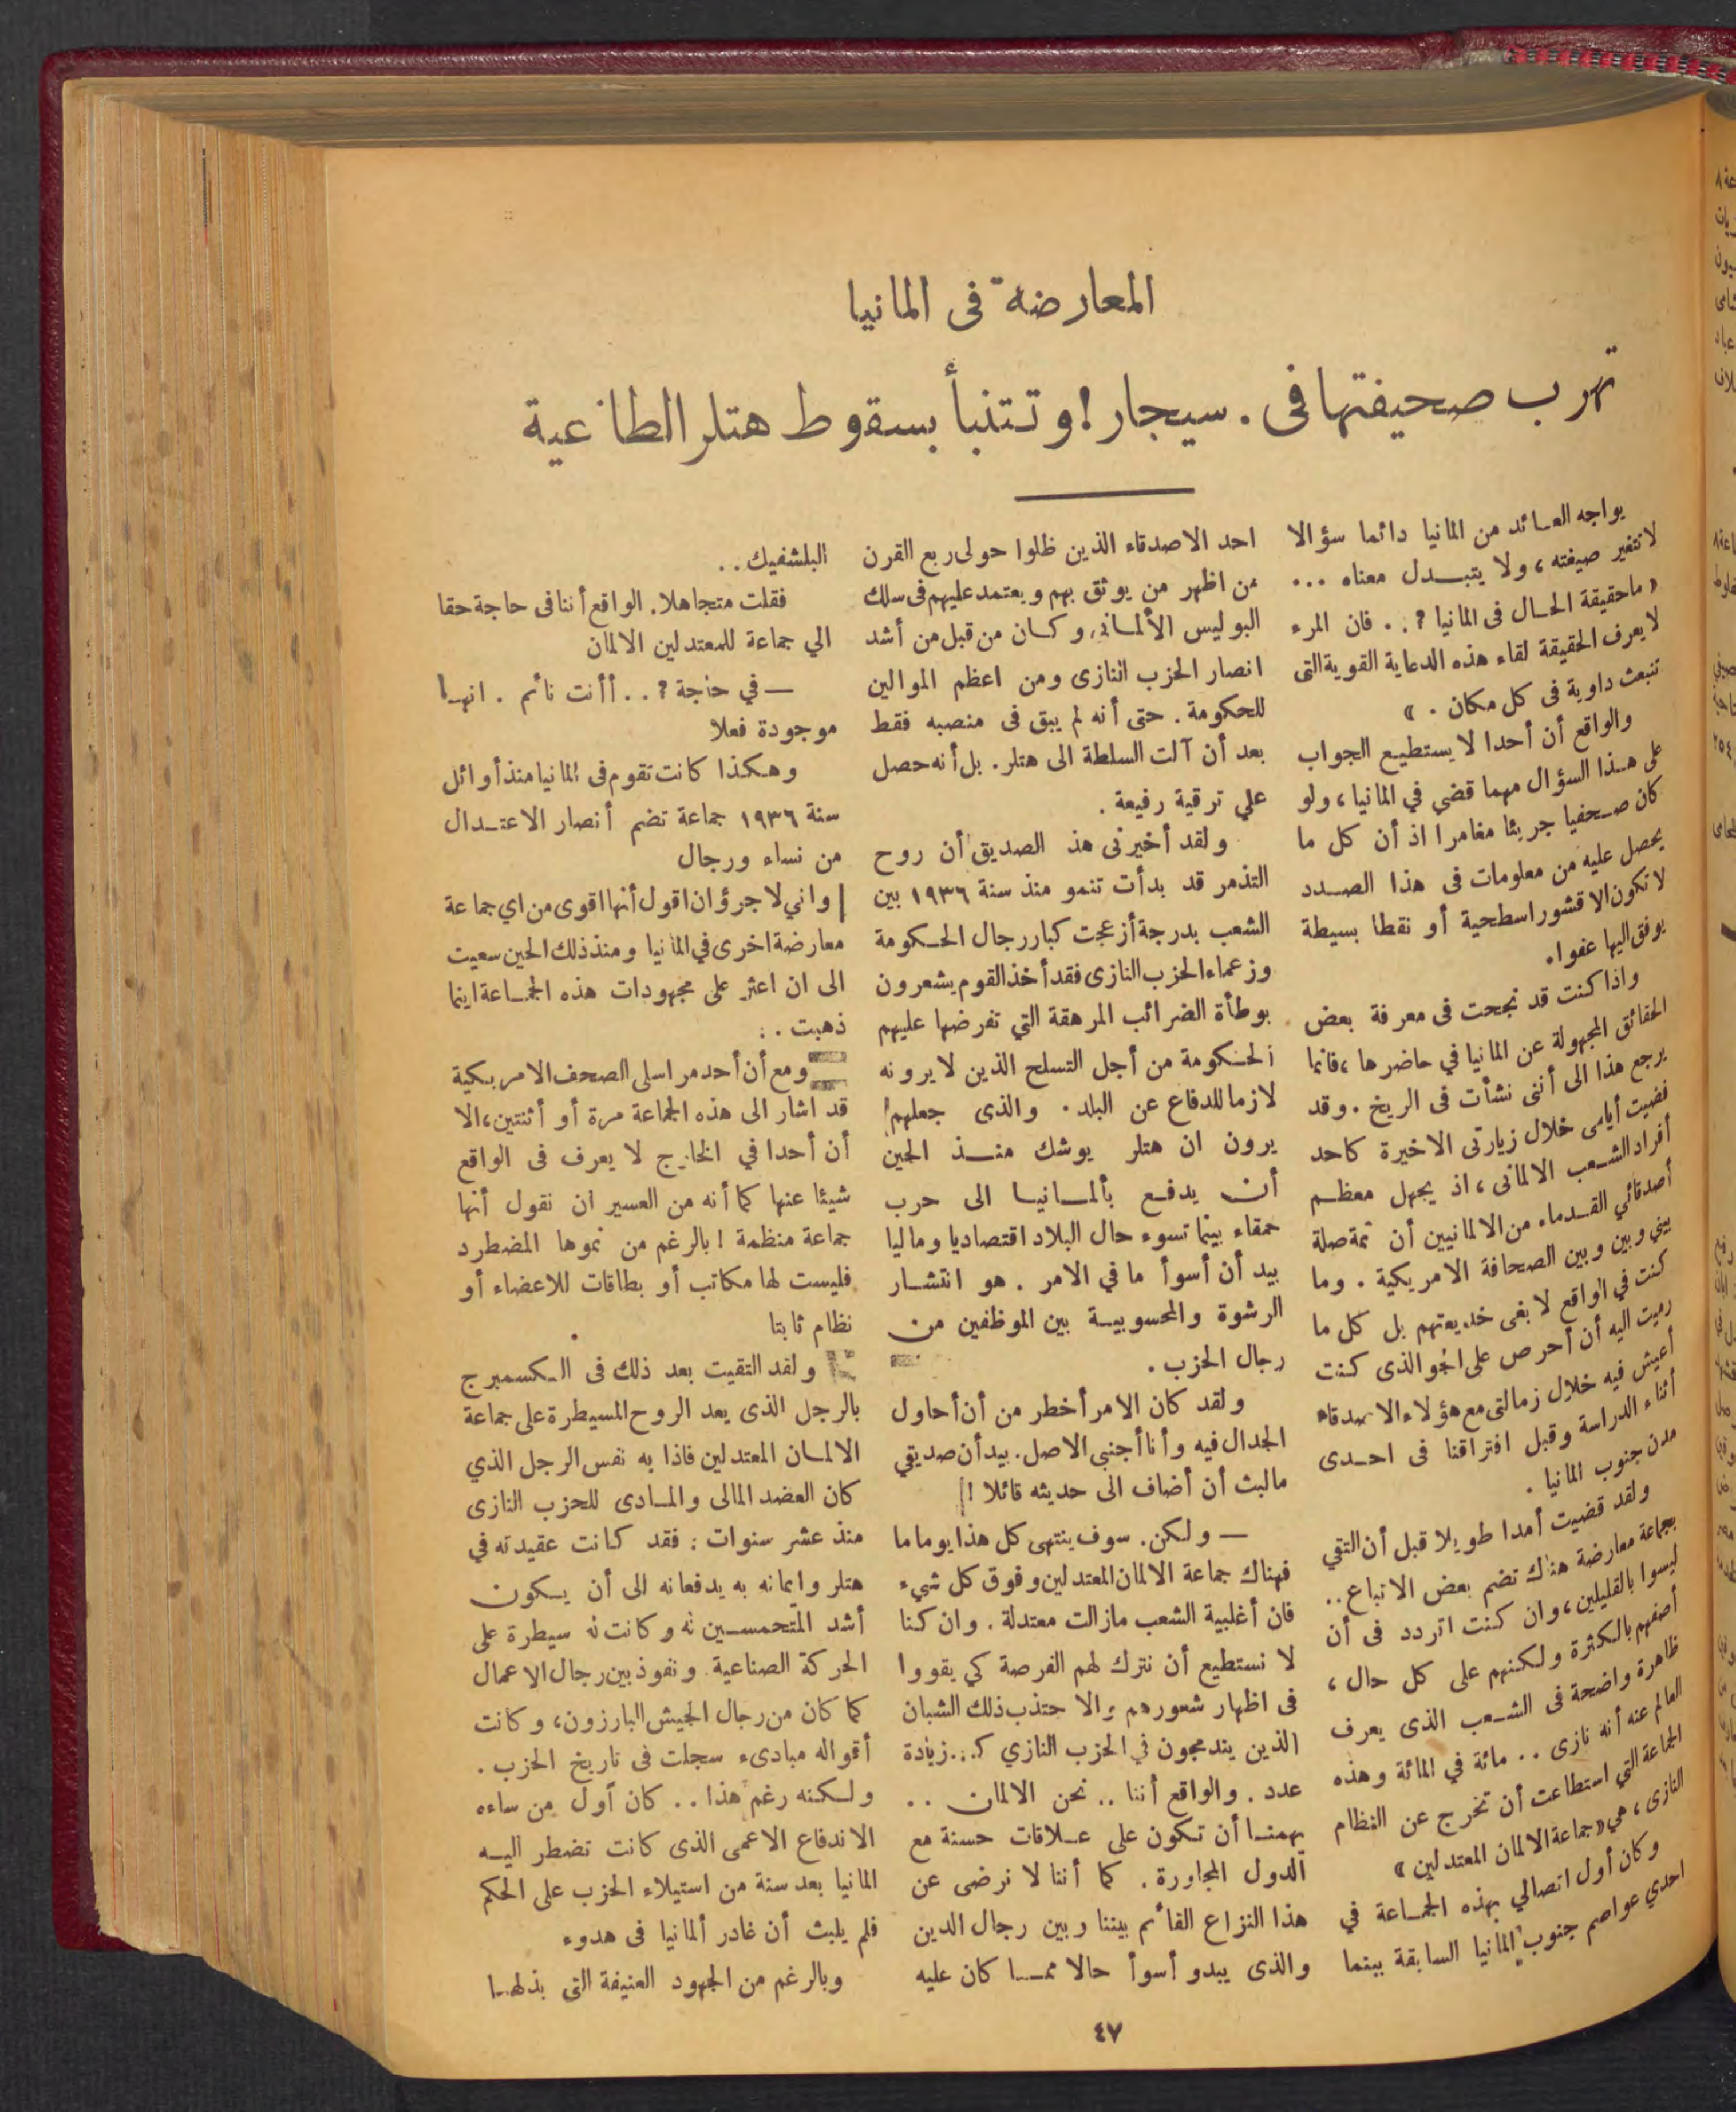 المعارضة فى المانيا
تهرب صحيفتها فى . سيجار ! وتتنبأ بسقوط هتلر الطاغية
يواجه العائد من المانيا دائما سؤالا
لا تتغير صيغته ، ولا يتبدل معناه ...
« ما حقيقة الحال فى المانيا ? . . فان المرء
لا يعرف الحقيقة لقاء هذه الدعاية القوية التى
تنبعث داوية فى كل مكان . »
والواقع أن أحدا لا يستطيع الجواب
على هذا السؤال مهما قضي في المانيا ، ولو
كان صحفيا جريئا مغامرا اذ أن كل ما
يحصل عليه من معلومات فى هذا الصدد
لا تكون الا قشورا سطحية أو نقطا بسيطة
يوفق اليها عفوا .
واذا كنت قد نجحت فى معرفة بعض
الحقائق المجهولة عن المانيا في حاضرها ، فانما
يرجع هذا الى أننى نشأت فى الريخ . وقد
قضيت أيامى خلال زيارتى الاخيرة كاحد
أفراد الشعب الالمانى ، اذ يجهل معظم
أصدقائي القدماء من الالمانيين أن ثمة صلة
بيني وبين وبين الصحافة الامريكية . وما
كنت في الواقع لا بغى خديعتهم بل كل ما
رميت اليه أن أحرص على الجو الذى كنت
أعيش فيه خلال زمالتى مع هؤلاء الاصدقاء
أثناء الدراسة وقبل افتراقنا فى احدى
مدن جنوب المانيا .
ولقد قضيت أمدا طويلا قبل أن التقي
بجماعة معارضة هناك تضم بعض الاتباع ..
ليسوا بالقليلين ، وان كنت اتردد فى أن
أصفهم بالكثرة ولكنهم على كل حال ،
ظاهرة واضحة فى الشعب الذى يعرف
العالم عنه أنه نازى . . مائة في المائة وهذه
الجماعة التي استطاعت أن تخرج عن النظام
النازى ، هي « جماعة الالمان المعتدلين »
وكان أول اتصالي بهذه الجماعة في
احدي عواصم جنوب المانيا السابقة بينما
احد الاصدقاء الذين ظلوا حولى ربع القرن
من اظهر من يوثق بهم ويعتمد عليهم فى سلك
البوليس الألمانى وكان من قبل من أشد
انصار الحزب النازى ومن اعظم الموالين
للحكومة . حتى أنه لم يبق فى منصبه فقط
بعد أن آلت السلطة الى هتلر . بل أنه حصل
علي ترقية رفيعة .
ولقد أخيرنى هذ الصديق أن روح
التذمر قد بدأت تنمو منذ سنة ١٩٣٦ بين
الشعب بدرجة أزعجت كبار رجال الحكومة
وزعماء الحزب النازى فقد أخذ القوم يشعرون
بوطأة الضرائب المرهقة التي تفرضها عليهم
الحكومة من أجل التسلح الذين لا يرونه
لازما للدفاع عن البلد . والذى جعلهم
يرون ان هتلر يوشك منذ الحين
أن يدفع بألمانيا الى حرب
حمقاء بينما تسوء حال البلاد اقتصاديا وماليا
بيد أن أسوأ ما في الامر . هو انتشار
الرشوة والمحسوبية بين الموظفين من
رجال الحزب .
ولقد كان الامر أخطر من أن أحاول
الجدال فيه وأنا أجنبى الاصل . بيد أن صديقي
مالبث أن أضاف الى حديثه قائلا !
— ولكن . سوف ينتهى كل هذا يوما ما
فهناك جماعة الالمان المعتدلين وفوق كل شيء
فان أغلبية الشعب مازالت معتدلة . وان كنا
لا نستطيع أن نترك لهم الفرصة كي يقووا
فى اظهار شعورهم والا جتذب ذلك الشبان
الذين يندمجون في الحزب النازي زيادة
عدد . والواقع أننا .. نحن الالمان ..
يهمنا أن تكون على علاقات حسنة مع
الدول المجاورة . كما أننا لا نرضى عن
هذا النزاع القائم بيننا وبين رجال الدين
والذى يبدو أسوأ حالا مما كان عليه
البلشفيك . .
فقلت متجاهلا . الواقع أننا فى حاجة حقا
الي جماعة للمعتدلين الالمان
— في حاجة ? . . أأنت نائم . انها
موجودة فعلا
وهكذا كانت تقوم فى المانيا منذ أوائل
سنة ١٩٣٦ جماعة تضم أنصار الاعتدال
من نساء ورجال
واني لاجرؤ ان اقول أنها اقوى من اي جماعة
معارضة اخرى في المانيا ومنذ ذلك الحين سعيت
الى ان اعثر على مجهودات هذه الجماعة اينما
ذهبت . .
ومع أن أحد مراسلى الصحف الامريكية
قد اشار الى هذه الجماعة مرة أو أثنتين ، الا
أن أحدا في الخارج لا يعرف فى الواقع
شيئا عنها كما أنه من العسير ان نقول أنها
جماعة منظمة ! بالرغم من نموها المضطرد
فليست لها مكاتب أو بطاقات للاعضاء أو
نظام ثابتا
ولقد التقيت بعد ذلك فى الكسمبرج
بالرجل الذى يعد الروح المسيطرة على جماعة
الالمان المعتدلين فاذا به نفس الرجل الذي
كان العضد المالى والمادى للحزب النازى
منذ عشر سنوات : فقد كانت عقيدته في
هتلر وايمانه به يدفعانه الى أن يكون
أشد المتحمسين له وكانت له سيطرة على
الحركة الصناعية ونفوذ بين رجال الاعمال
كما كان من رجال الجيش البارزون ، وكانت
أقواله مبادىء سجلت فى تاريخ الحزب .
ولكنه رغم هذا . . كان أول من ساءه
الاندفاع الاعمى الذى كانت تضطر اليه
المانيا بعد سنة من استيلاء الحزب على الحكم
فلم يلبث أن غادر ألمانيا فى هدوء
وبالرغم من الجهود العنيفة التى بذلها
٤٧